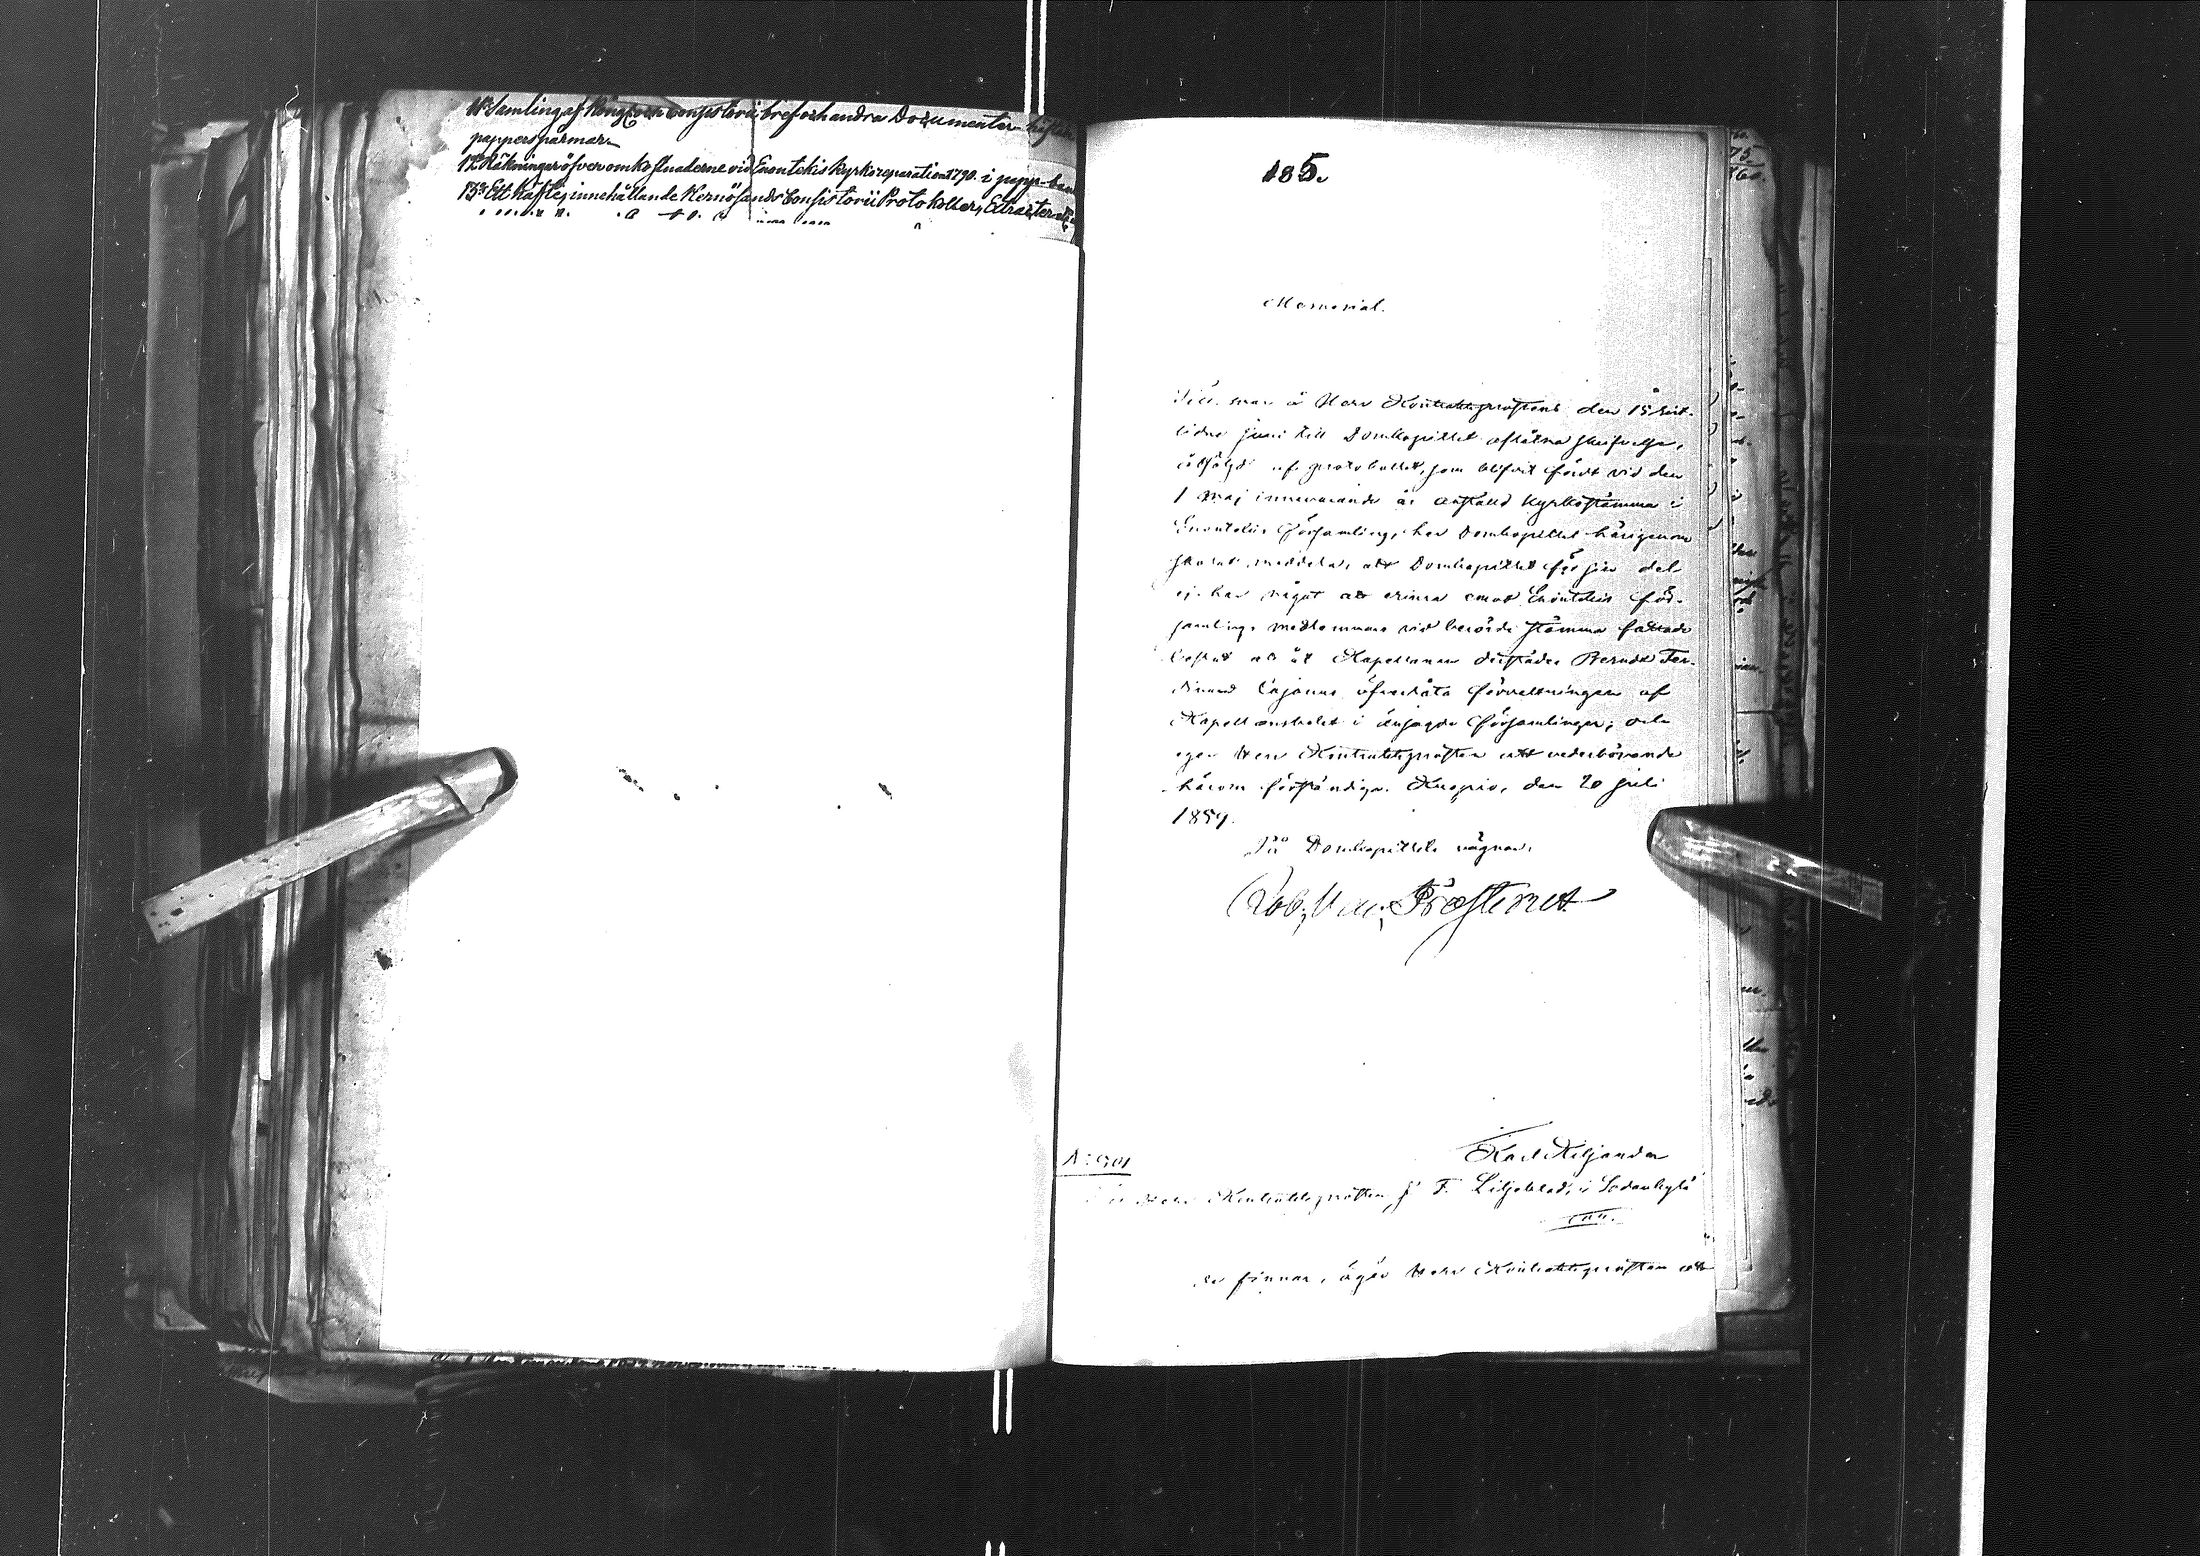 11o Samling af Kongl. och Consistorii bref och andra Documenter häftade
papperspärmar
12o Räkningar öfver omkostnaderne vid Enontekis Kyrkoreparation 1790. i papp-band
13o Ett häfte, innehållande Hernösands Consistorii Protokoller, Extracter
185.
Memorial.
Till svar å Herr Kontraktsprostens den 15 sist-
lidne juni till Domkapitlet aflåtna skrifvelse,
åtföljd af protokollet, som blifvit fördt vid den
1 Maj innevarande år anställd Kyrkostämma i
Enontekis församling, har Domkapitlet härigenom
skolat meddela, att Domkapitlet för sin del
ej har något att erinra emot Enontekis för-
samlings medlemmars vid berörde stämma fattade
beslut att åt Kapellanen derstädes Berndt Fer-
dinand Cajanus öfverlåta förvaltningen af
Kapellansbolet i ansagde församlingen; och
eger Herr Kontraktsprosten att vederbörande
härom förständiga. Kuopio, den 20 juli
1859.
På Domkapitlets vägnar:
Rob. V. Frosterus
Karl Kiljander
N: 901
Till Herr Kontraktsprosten J. F. Liljeblad, i Sodankylä
finnes, äger Herr Kontraktsprosten att